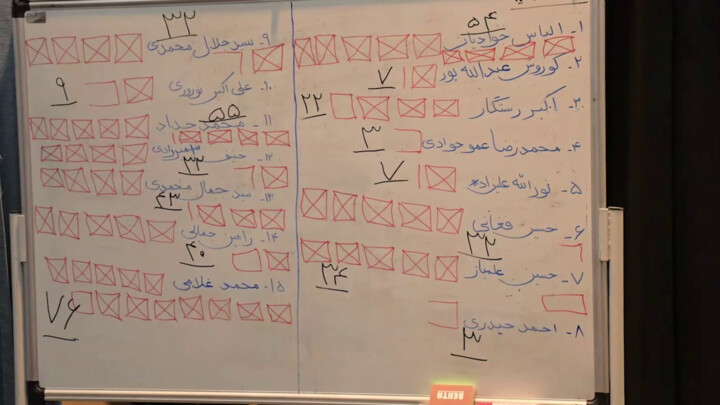 ۱- الیاس خدادیان ۵۴
۲- کوروش عبدالله پور ۷
۳- اکبر رستگار ۲۲
۴- محمدرضا عموجوادی ۳
۵- نورالله علیزاده ۷
۶- حسین فغانی ۳۲
۷- حسین علیباز ۳۴
۸- احمد حیدری ۳
۹- سید جلال محمدی ۳۲
۱۰- علی اکبر نوروزی ۹
۱۱- محمد حداد ۵۵
۱۲- ۳۲
۱۳- سید جمال محمدی ۴۳
۱۴- رامین جمالی ۴۰
۱۵- محمد غلامی ۷۶